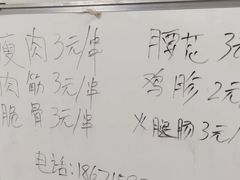 瘦肉 3元/串
肉筋 3元/串
脆骨 3元/串
腰花 3元
鸡胗 2元
火腿肠 3元/
电话: